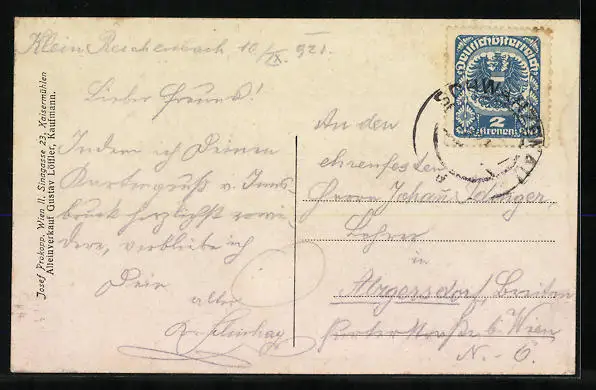 Klein Reichenbach 10/IX. 921.
Lieber Freund!
Indem ich Deinen
Kartengruß v. Inns-
bruck herzlichst erwi-
dere, verbleibe ich
Dein
alter
Josef Prokopp, Wien II, Sinagasse 23, Kaisermühlen
Alleinverkauf Gustav Löffler, Kaufmann.
Deutschösterreich
2
Kronen
SCHWARZENAU
An den
ehrenfesten
Herrn Johann
Lehrer
in
Atzgersdorf
b. Wien
N.-Ö.